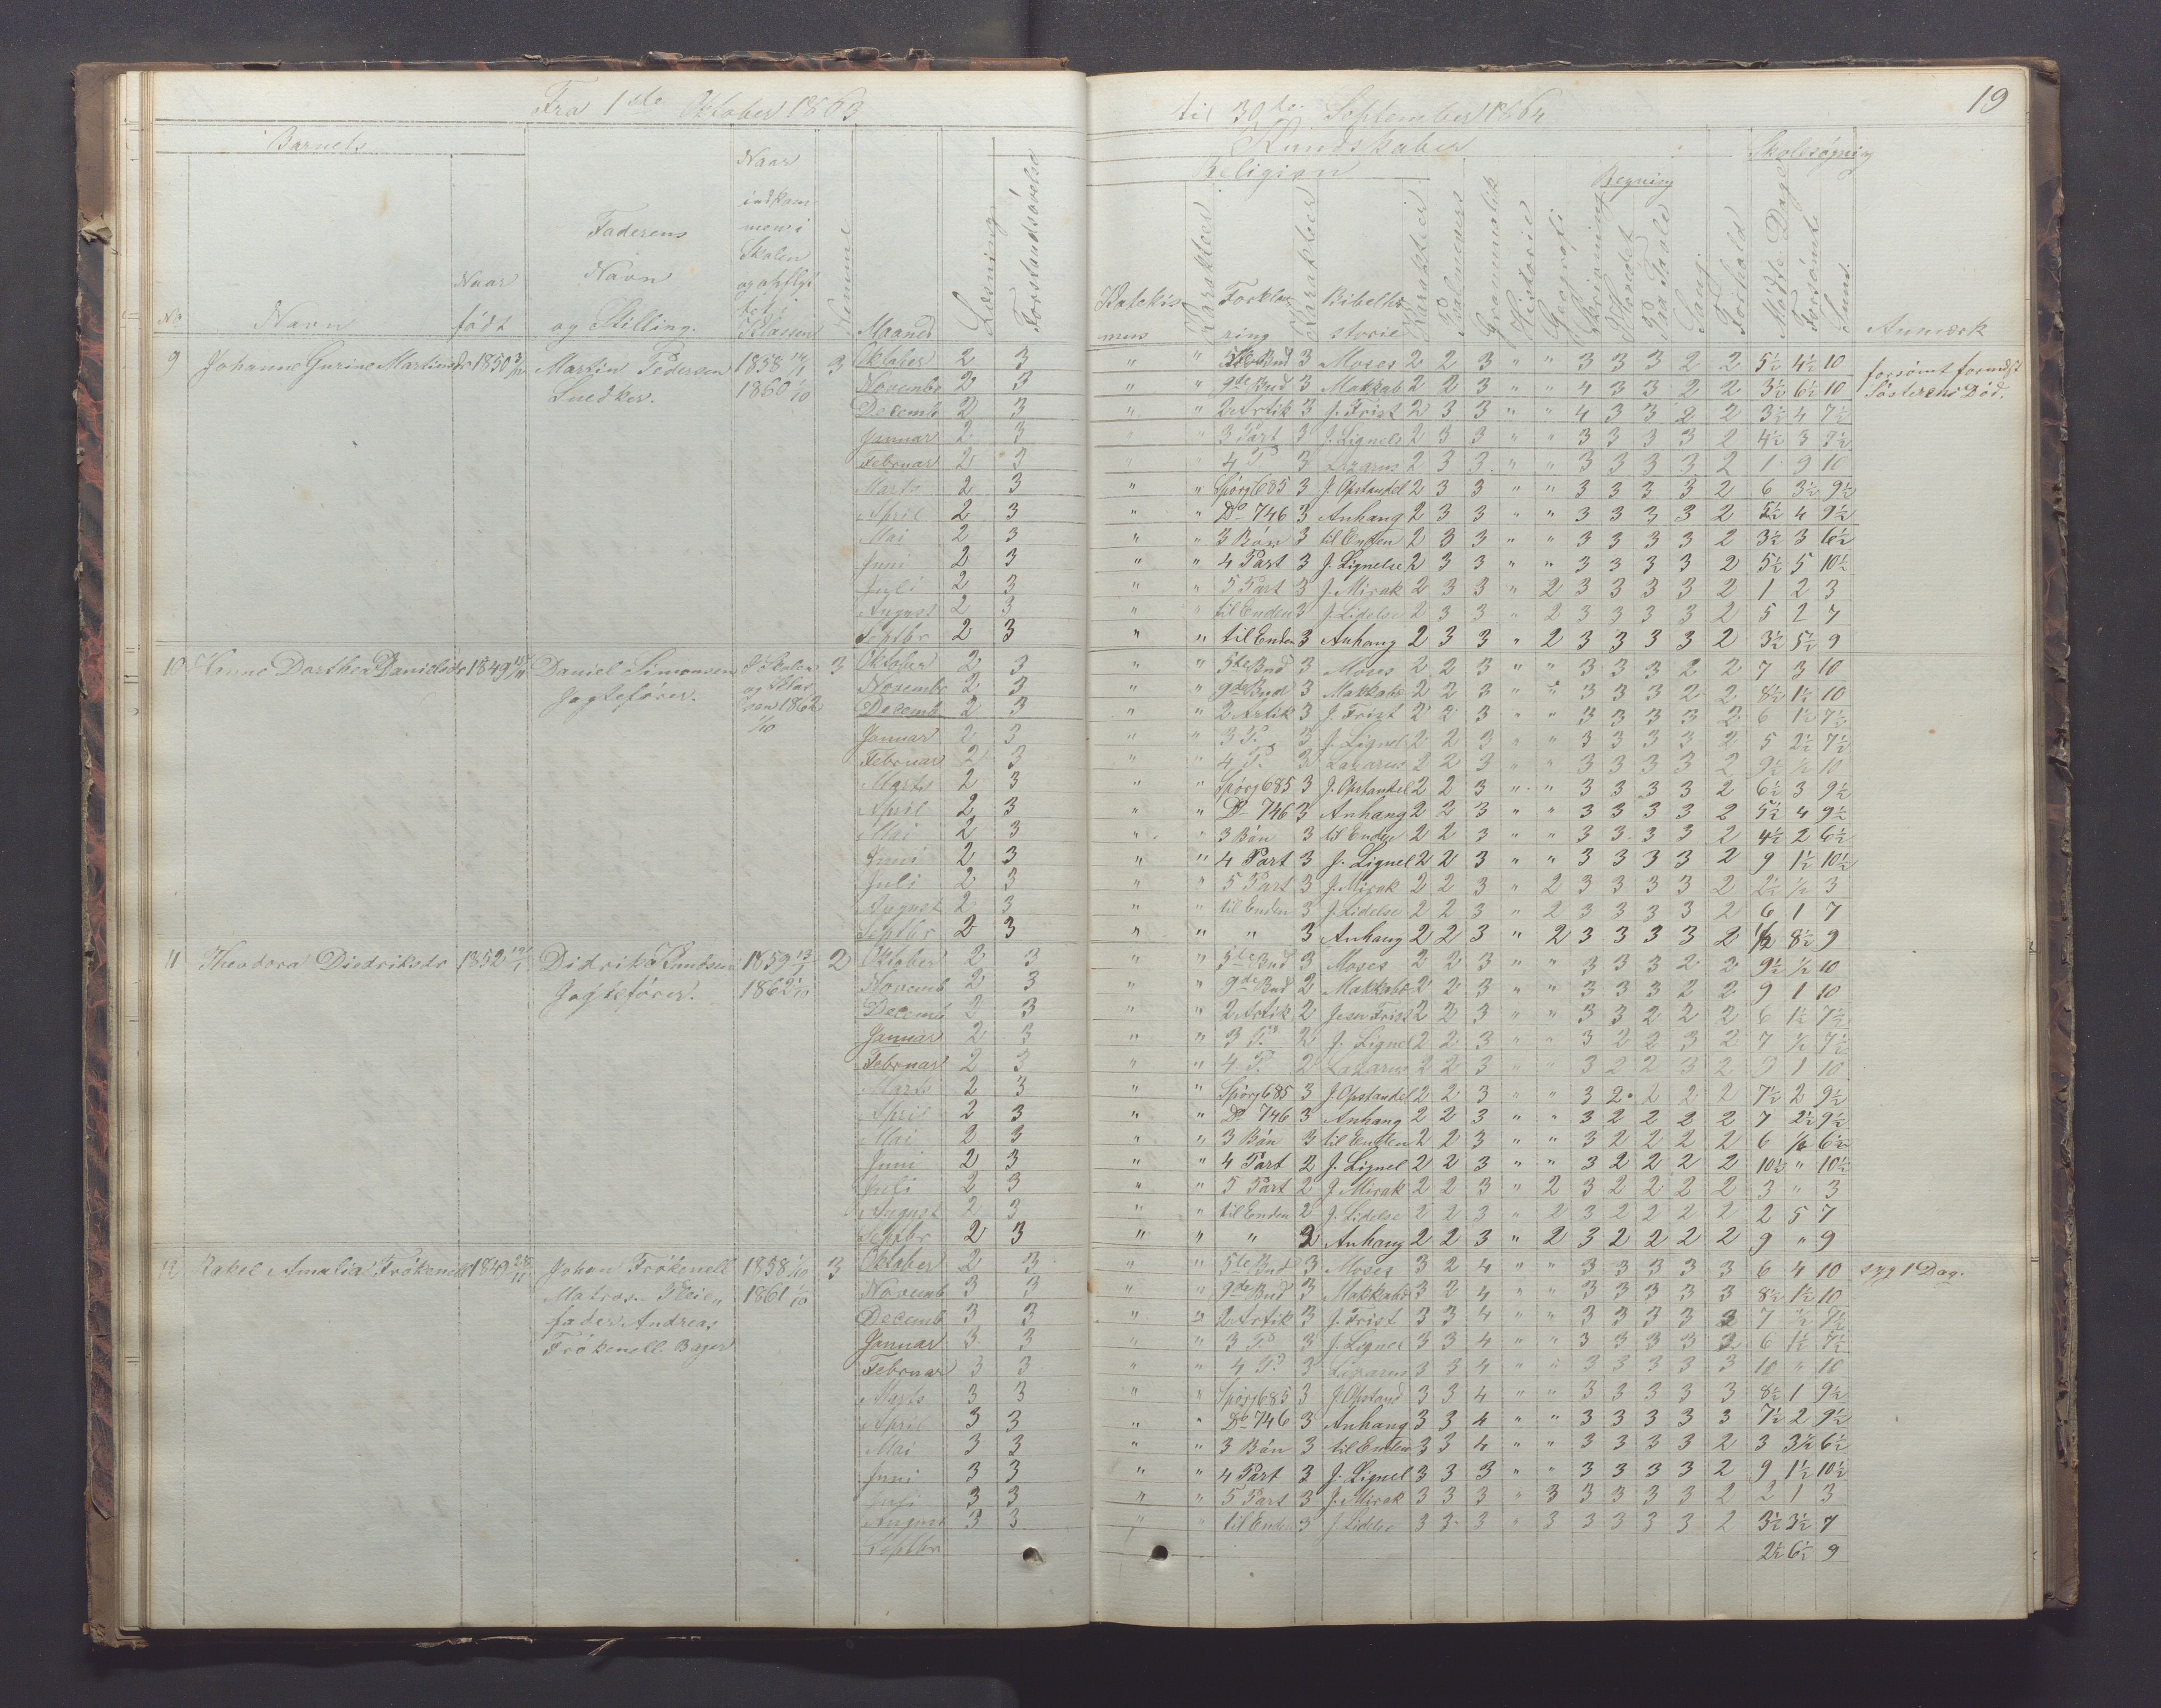 Fra 1ste Oktober 1863
til 30te September 1864
19
Barnets
Kundskaber
Skolesøgning
Religion
Regning
No
Navn
Naar født
Faderens Navn og Stilling.
Naar indkommen i Skolen og opflyttet i Klassen
Evne
Maaned
Læsning
Forstandsøvelse
Katekismus
Karakter
Forklaring
Karakter
Bibelhistorie
Karakter
Psalmevers
Grammatik
Historie
Geografi
Skrivning
Hovedet
Paa Tavle
Sang
Forhold
Mødte Dage
Forsømte
Sum.
Anmærk
9 Johanne Gurine Martinsdr 1850 Martin Pedersen 1858 3 Oktober 2 3 " " 5te Bud 3 Moses 2 2 3 " " 3 3 3 2 2 5½ 4½ 10 forsømt formedst
Snedker. 1860 1/10 Novembr 2 3 " " 9de Bud 3 Makkab 2 2 3 " " 4 3 3 2 2 3½ 6½ 10 Søsterens Død.
Decemb 2 3 " " 2 Artik 3 J. Frist 2 3 3 " " 4 3 3 2 2 3½ 4 7½
Januar 2 3 " " 3 Part 3 J. Lignels 2 3 3 " " 3 3 3 3 2 4½ 3 7½
Februar 2 3 " " 4 P. 3 Lazarus 2 3 3 " " 3 3 3 3 2 1 9 10
Marts 2 3 " " Spørg 685 3 J. Opstandel 2 3 3 " " 3 3 3 3 2 6 3½ 9½
April 2 3 " " Do 746 3 Anhang 2 3 3 " " 3 3 3 3 2 5½ 4 9½
Mai 2 3 " " 3 Bøn 3 til Enden 2 3 3 " " 3 3 3 3 2 3½ 3 6½
Juni 2 3 " " 4 Part 3 J. Lignelse 2 3 3 " " 3 3 3 3 2 5½ 5 10½
Juli 2 3 " " 5 Part 3 J. Mirak 2 3 3 " 2 3 3 3 3 2 1 2 3
August 2 3 " " til Enden 3 J. Lidelse 2 3 3 " 2 3 3 3 3 2 5 2 7
Septbr 2 3 " " til Enden 3 Anhang 2 3 3 " 2 3 3 3 3 2 3½ 5½ 9
10 Hanne Dorthea Danielsdr 1849 Daniel Simonsen I Skolen 3 Oktober 2 3 " " 5te Bud 3 Moses 2 2 3 " " 3 3 3 2 2 7 3 10
Jagtefører. og Klassen 1862 1/10 Novembr 2 3 " " 9de Bud 3 Makkab 2 2 3 " " 3 3 3 2 2 8½ 1½ 10
Decemb 2 3 " " 2 Artik 3 J. Frist 2 2 3 " " 3 3 3 3 2 6 1½ 7½
Januar 2 3 " " 3 P. 3 J. Lignel 2 2 3 " " 3 3 3 3 2 5 2½ 7½
Februar 2 3 " " 4 P. 3 Lazarus 2 2 3 " " 3 3 3 3 2 9½ ½ 10
Marts 2 3 " " Spørg 685 3 J. Opstandel 2 2 3 " " 3 3 3 3 2 6½ 3 9½
April 2 3 " " Do 746 3 Anhang 2 2 3 " " 3 3 3 3 2 5½ 4 9½
Mai 2 3 " " 3 Bøn 3 til Enden 2 2 3 " " 3 3 3 3 2 4½ 2 6½
Juni 2 3 " " 4 Part 3 J. Lignel 2 2 3 " " 3 3 3 3 2 9 1½ 10½
Juli 2 3 " " 5 Part 3 J. Mirak 2 2 3 " 2 3 3 3 3 2 2½ ½ 3
August 2 3 " " til Enden 3 J. Lidelse 2 2 3 " 2 3 3 3 3 2 6 1 7
Septbr 2 3 " " " 3 Anhang 2 2 3 " 2 3 3 3 3 2 ½ 8½ 9
11 Theodora Diedriksdr 1852 Didrik Knudsen 1859 2 Oktober 2 3 " " 5te Bud 3 Moses 2 2 3 " " 3 3 3 2 2 9½ ½ 10
Jagtefører. 1862 1/10 Novemb 2 3 " " 9de Bud 2 Makkab 2 2 3 " " 3 3 3 2 2 9 1 10
Decemb 2 3 " " 2 Artik 2 Jesu Frist 2 2 3 " " 3 3 2 2 2 6 1½ 7½
Januar 2 3 " " 3 P. 2 J. Lignel 2 2 3 " " 3 2 2 3 2 7 ½ 7½
Februar 2 3 " " 4 P. 2 Lazarus 2 2 3 " " 3 2 2 3 2 9 1 10
Marts 2 3 " " Spørg 685 3 J. Opstandel 2 2 3 " " 3 2 2 2 2 7½ 2 9½
April 2 3 " " Do 746 3 Anhang 2 2 3 " " 3 2 2 2 2 7 2½ 9½
Mai 2 3 " " 3 Bøn 3 til Enden 2 2 3 " " 3 2 2 2 2 6 ½ 6½
Juni 2 3 " " 4 Part 2 J. Lignel 2 2 3 " " 3 2 2 2 2 10½ " 10½
Juli 2 3 " " 5 Part 2 J. Mirak 2 2 3 " 2 3 2 2 2 2 3 " 3
August 2 3 " " til Enden 2 J. Lidelse 2 2 3 " 2 3 2 2 2 2 2 5 7
Septbr 2 3 " " " 2 Anhang 2 2 3 " 2 3 2 2 2 2 9 " 9
12 Rakel Amalia Frökenell 1849 Johan Frökenell 1858 1/10 3 Oktober 2 3 " " 5te Bud 3 Moses 3 2 4 " " 3 3 3 3 3 6 4 10 syg 1 Dag.
Matros. Pleie„ 1861 1/10 Novemb 3 3 " " 9de Bud 3 Makkab 3 2 4 " " 3 3 3 3 3 8½ 1½ 10
fader Andreas Decemb 3 3 " " 2 Artik 3 J. Frist 3 3 4 " " 3 3 3 3 3 7 ½ 7½
Frökenell Bager Januar 3 3 " " 3 P. 3 J. Lignel 3 3 4 " " 3 3 3 3 3 6 1½ 7½
Februar 3 3 " " 4 P. 3 Lazarus 3 3 4 " " 3 3 3 3 3 10 " 10
Marts 3 3 " " Spørg 685 3 J. Opstand 3 3 4 " " 3 3 3 3 3 8½ 1 9½
April 3 3 " " Do 746 3 Anhang 3 3 4 " " 3 3 3 3 3 7½ 2 9½
Mai 3 3 " " 3 Bøn 3 til Enden 3 3 4 " " 3 3 3 3 2 3 3½ 6½
Juni 3 3 " " 4 Part 3 J. Lignel 3 3 3 " " 3 3 3 3 2 9 1½ 10½
Juli 3 3 " " 5 Part 3 J. Mirak 3 3 3 " 3 3 3 3 3 2 2 1 3
August 3 3 " " til Enden 3 J. Lidels 3 3 3 " 3 3 3 3 3 2 3½ 3½ 7
Septbr 2½ 6½ 9